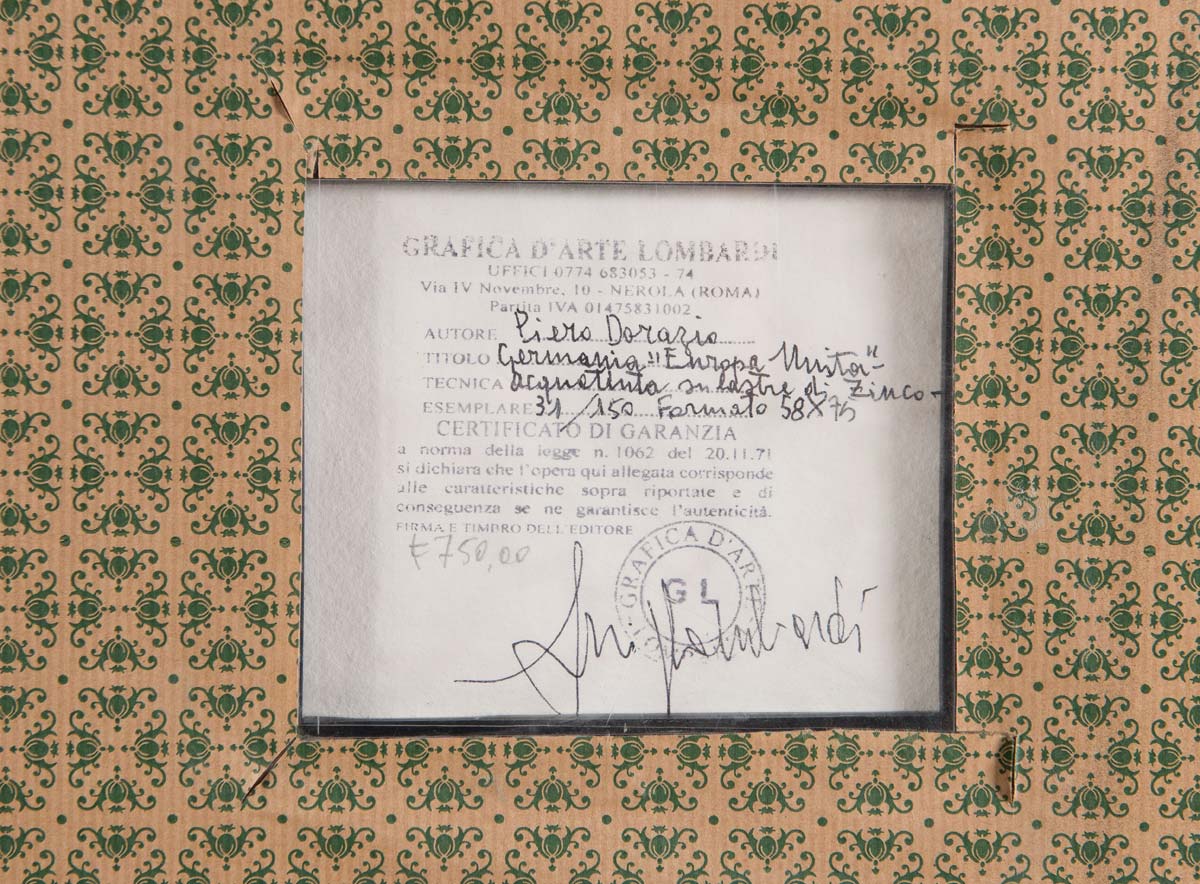 GRAFICA D'ARTE LOMBARDI
UFFICI 0774 683053 - 74
Via IV Novembre, 10 - NEROLA (ROMA)
Partita IVA 01475831002
AUTORE Piero Dorazio
TITOLO Germania "Europa Unita"-
TECNICA acquatinta su lastre di zinco-
ESEMPLARE 31/150 Formato 58X75
CERTIFICATO DI GARANZIA
a norma della legge n. 1062 del 20.11.71
si dichiara che l'opera qui allegata corrisponde
alle caratteristiche sopra riportate e di
conseguenza se ne garantisce l'autenticità.
FIRMA E TIMBRO DELL'EDITORE
€ 750,00
GRAFICA D'ARTE
GL
Lombardi